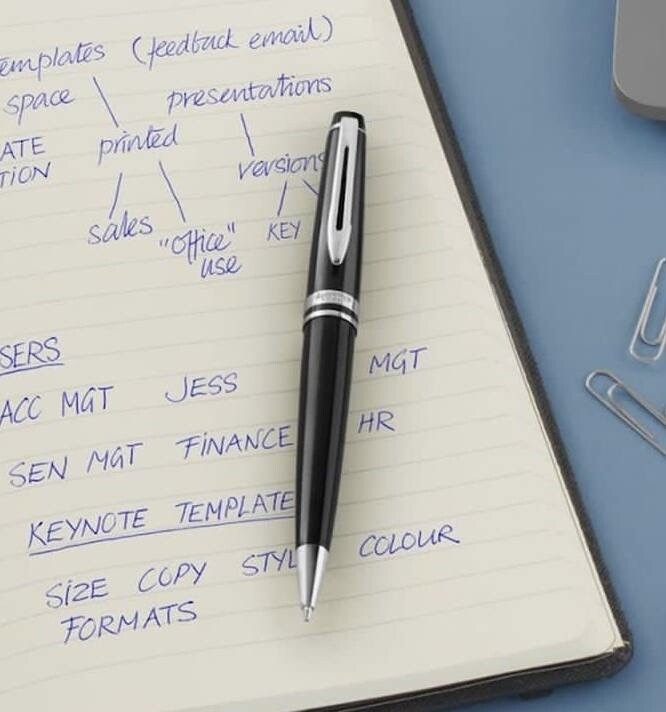 emplates (feedback email)
space presentations
ATE printed
TION versions
sales "office" KEY
use
SERS
ACC MGT JESS MGT
SEN MGT FINANCE HR
KEYNOTE TEMPLATE
SIZE COPY STYL COLOUR
FORMATS